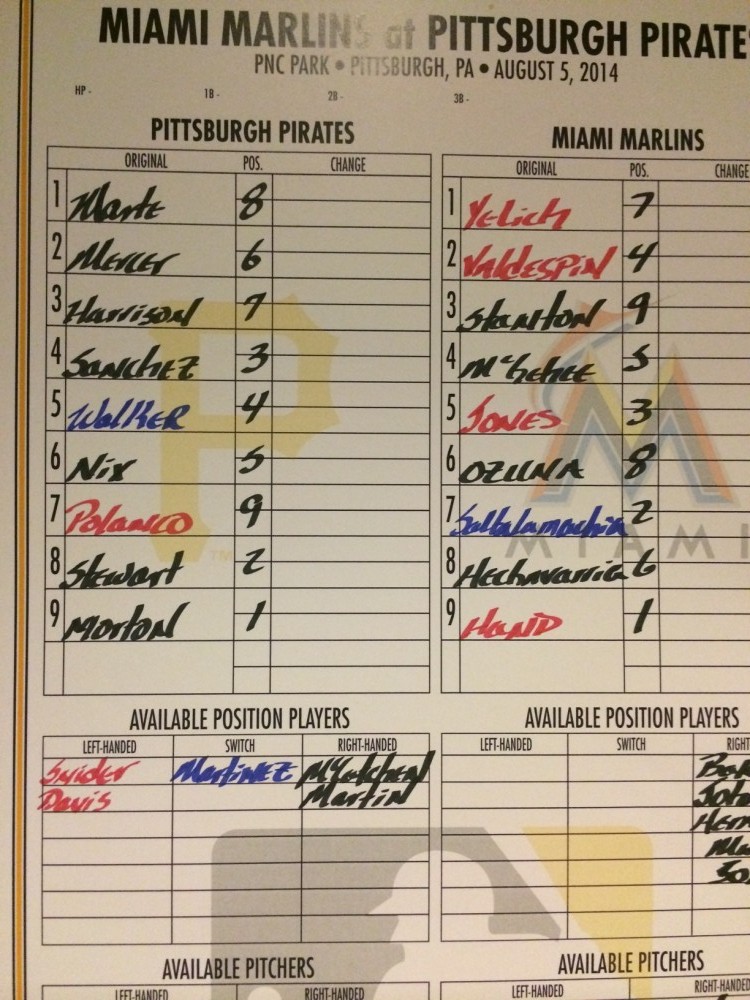 MIAMI MARLINS at PITTSBURGH PIRATES
PNC PARK • PITTSBURGH, PA • AUGUST 5, 2014
HP - 1B - 2B - 3B -
PITTSBURGH PIRATES
ORIGINAL POS. CHANGE
1 Marte 8
2 Mercer 6
3 Harrison 7
4 Sanchez 3
5 Walker 4
6 Nix 5
7 Polanco 9
8 Stewart 2
9 Morton 1
MIAMI MARLINS
ORIGINAL POS. CHANGE
1 Yelich 7
2 Valdespin 4
3 Stanton 9
4 McGehee 5
5 JONES 3
6 OZUNA 8
7 Saltalamachia 2
8 Hechavarria 6
9 HAND 1
TM
MIAMI
AVAILABLE POSITION PLAYERS
LEFT-HANDED SWITCH RIGHT-HANDED
Snider Martinez McCutchen
Davis Martin
AVAILABLE POSITION PLAYERS
LEFT-HANDED SWITCH RIGHT
AVAILABLE PITCHERS
LEFT-HANDED RIGHT-HANDED
AVAILABLE PITCHERS
LEFT-HANDED RIGHT-HANDED